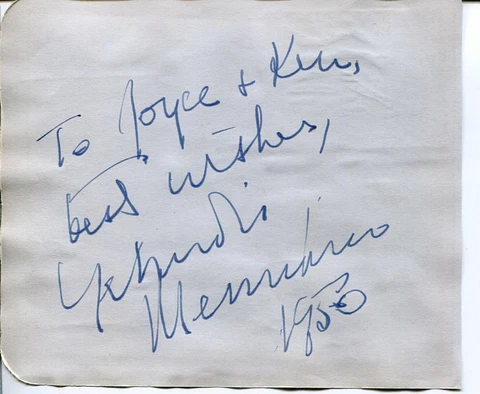 To Joyce + Ken,
best wishes,
Yehudi
Menuhin
1950